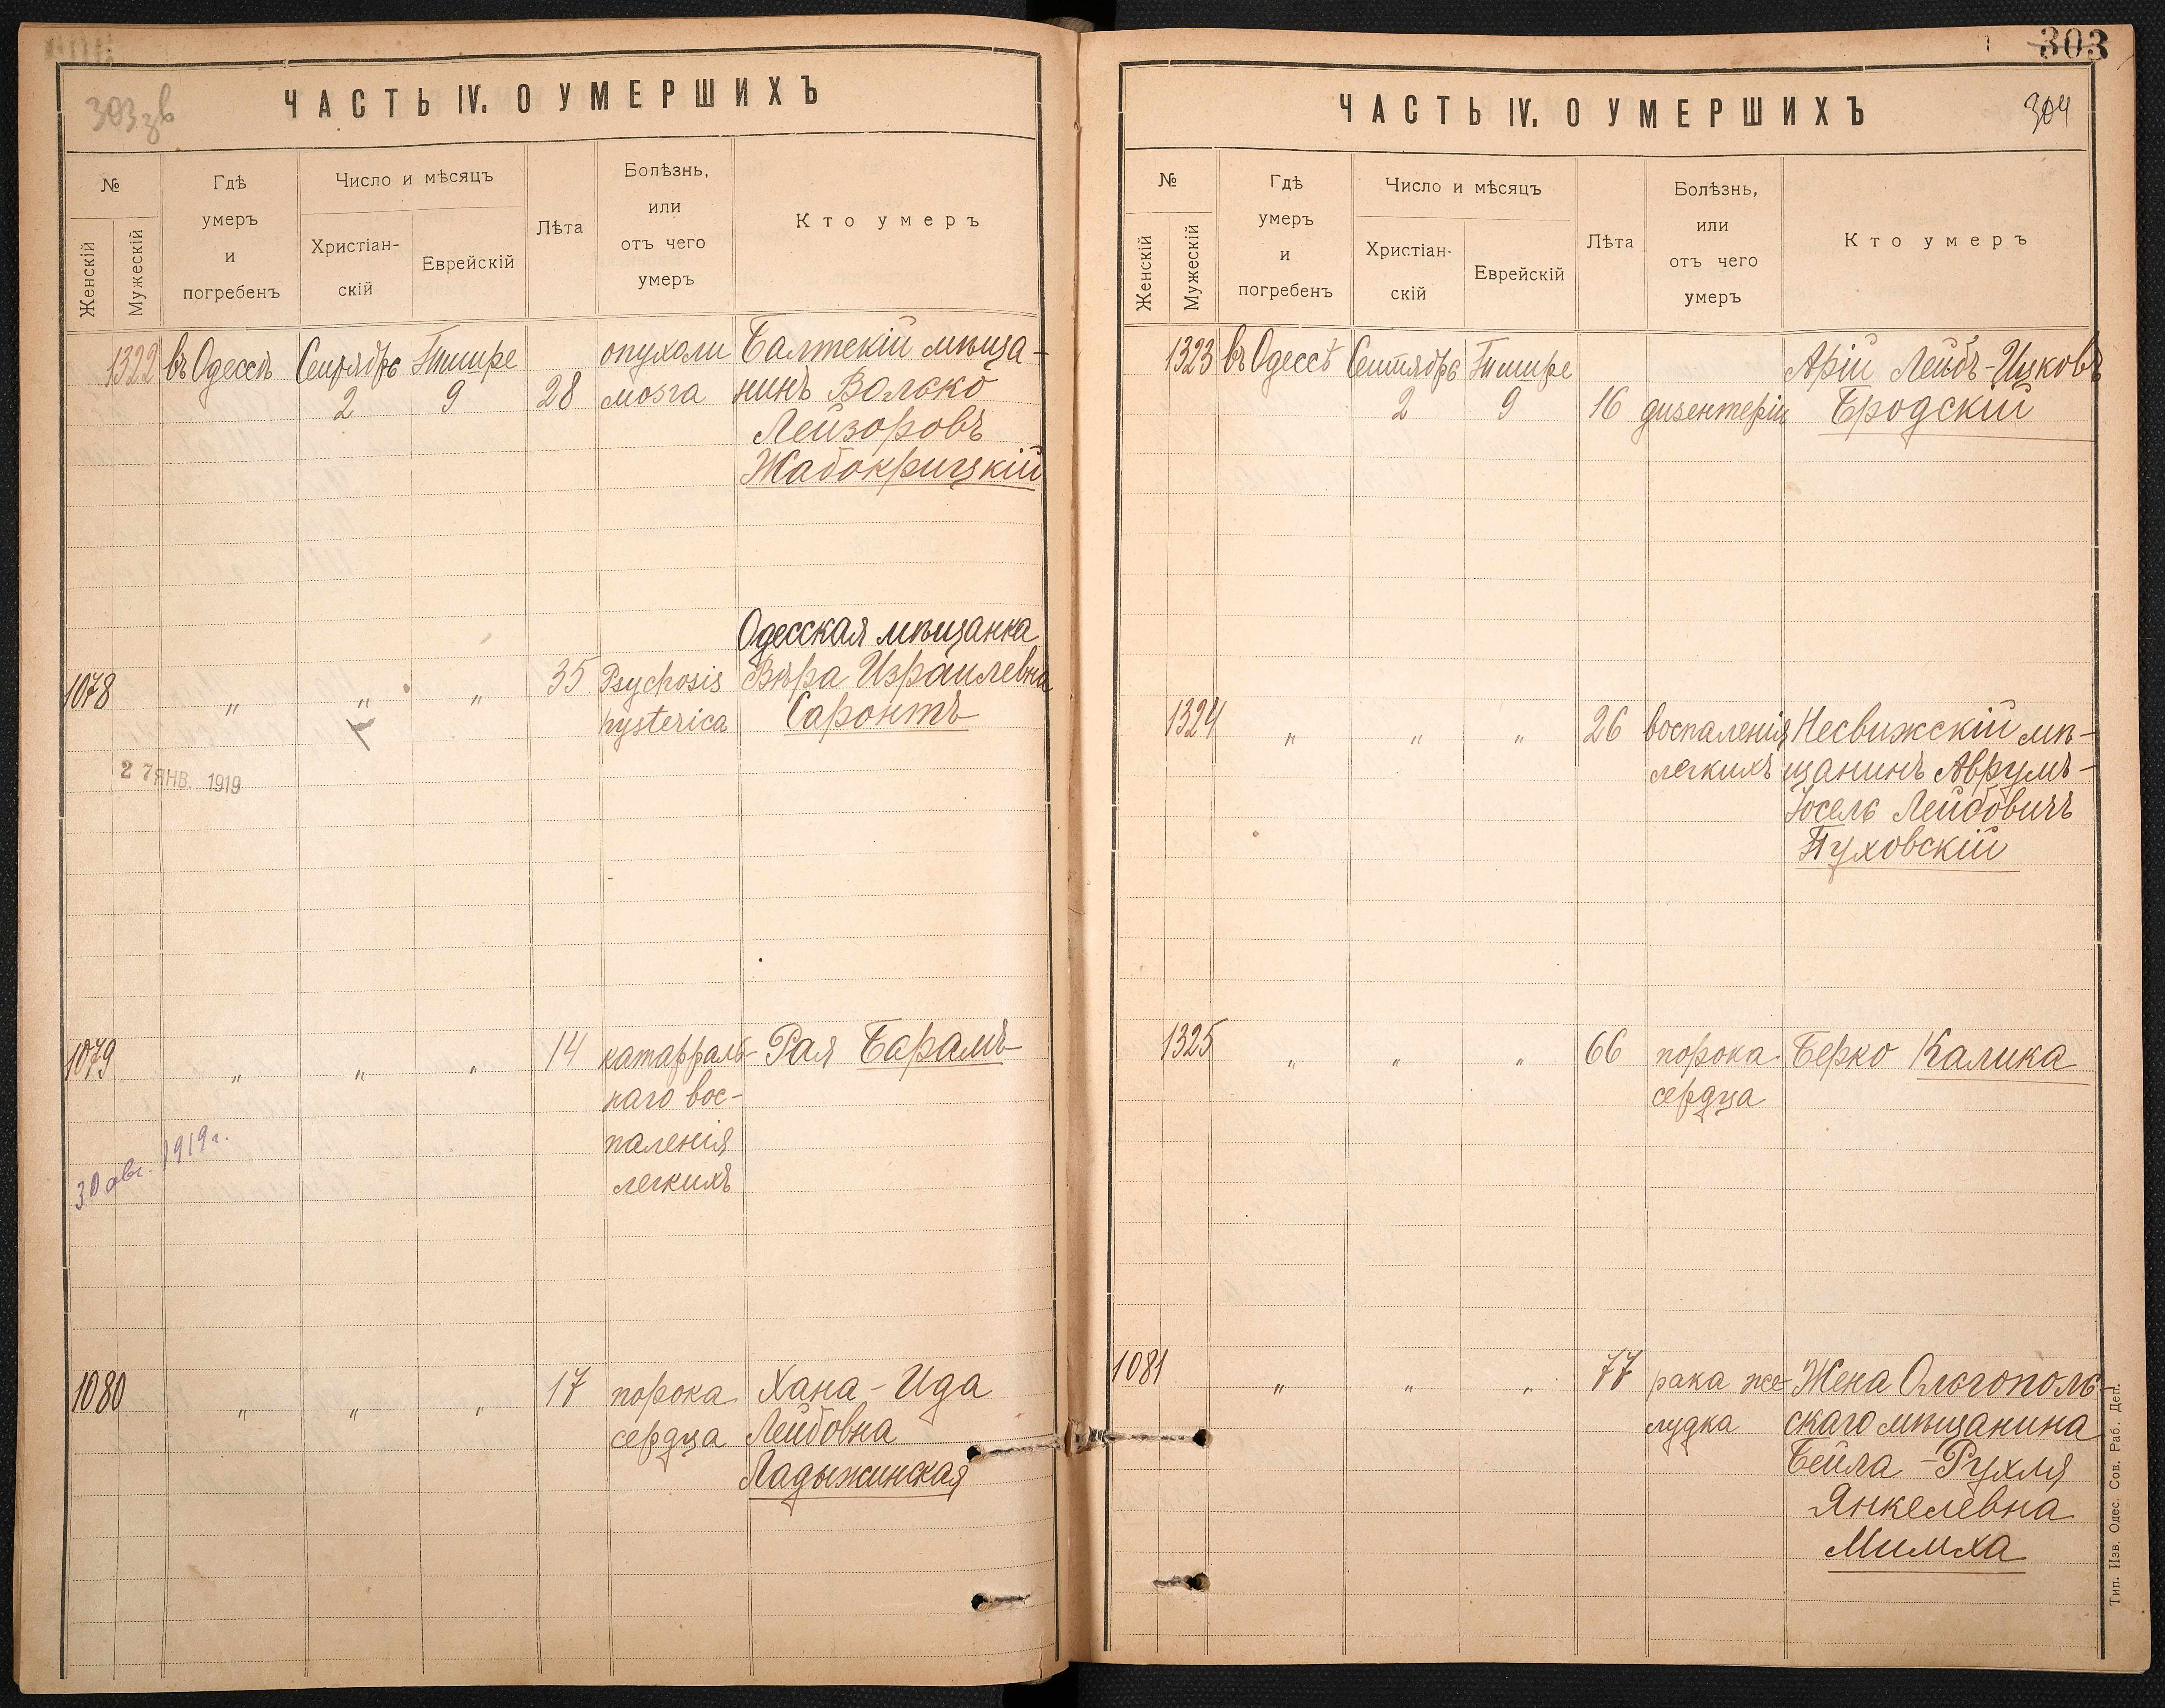 303 зв
ЧАСТЬ IV. О УМЕРШИХЪ
№
Женскій
Мужескій
Гдѣ
умеръ
и
погребенъ
Число и мѣсяцъ
Христіан-
скій
Еврейскій
Лѣта
Болѣзнь,
или
отъ чего
умеръ
Кто умеръ
1322 въ Одессѣ Сентябрь Тишре опухоли Балтскій мѣща-
2 9 28 мозга нинъ Волько
Лейзоровъ
Жабокрицкій
Одесская мѣщанка
1078 " " " 35 Psychosis Вѣра Израилевна
hysterica Саронтъ
27 ЯНВ. 1919
1079 " " " 14 катарраль- Рая Барамъ
наго вос-
паленія
легкихъ
30 авг. 1919 г.
1080 " " " 17 порока Хана-Ида
сердца Лейбовна
Ладыжинская
303
ЧАСТЬ IV. О УМЕРШИХЪ
304
№
Женскій
Мужескій
Гдѣ
умеръ
и
погребенъ
Число и мѣсяцъ
Христіан-
скій
Еврейскій
Лѣта
Болѣзнь,
или
отъ чего
умеръ
Кто умеръ
1323 въ Одессѣ Сентябрь Тишре Арій Лейбъ-Ицковъ
2 9 16 дизентеріи Бродскій
1324 " " " 26 воспаленія Несвижскій мѣ-
легкихъ щанинъ Аврумъ-
Іосель Лейбовичъ
Пуховскій
1325 " " " 66 порока Берко Калика
сердца
1081 " " " 77 рака же- Жена Ольгополь-
лудка скаго мѣщанина
Бейла-Рухля
Янкелевна
Милиха
Тип. Изв. Одес. Сов. Раб. Деп.